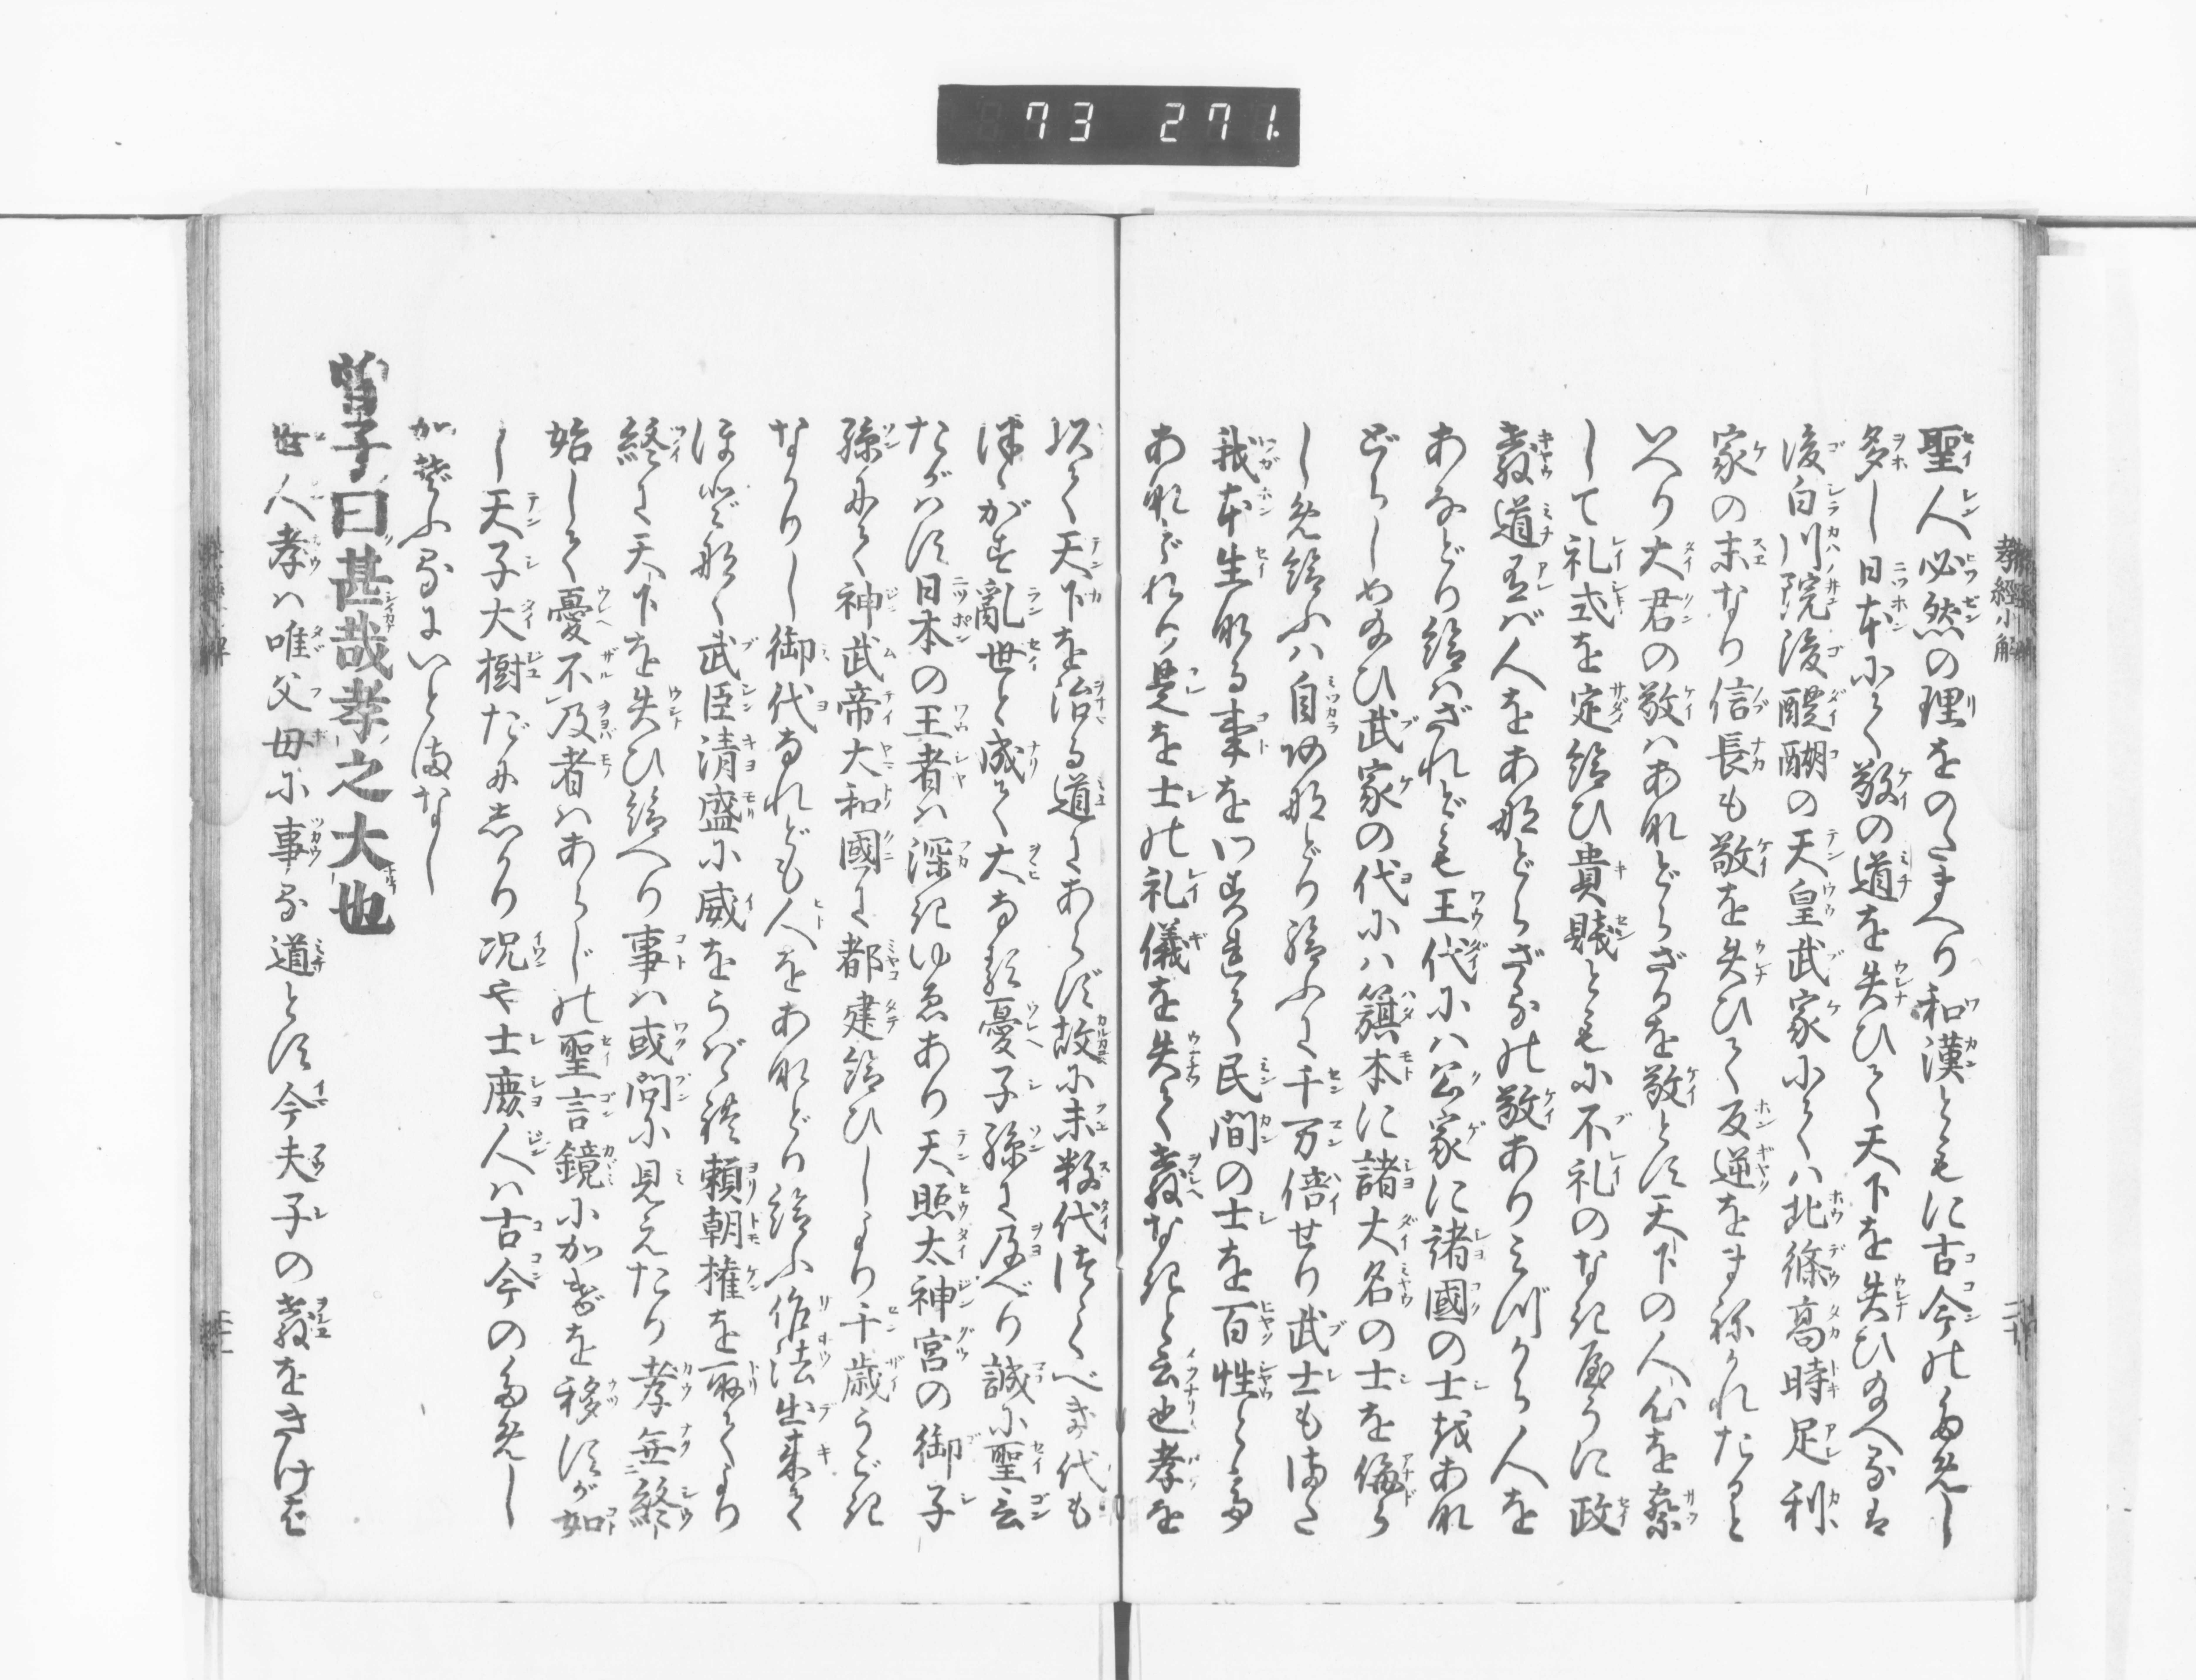 73 271.
孝經小解
聖人必然の理をのたまへり和漢ともに古今のためし
多し日本にて敬の道を失ひて天下を失ひ給へるは
後白川院後醍醐の天皇武家にては北條高時足利
家の末なり信長も敬を失ひて反逆をまねかれたると
いへり大君の敬はあなどらざるを敬とす天下の人心を察
して礼式を定給ひ貴賎ともに不礼のなきやうに政
教道あれば人をあなどらざるの敬ありみづから人を
あなどり給はざれども王代には公家に諸國の士をあな
どらしめ給ひ武家の代には籏本に諸大名の士を侮ら
しめ給ふは自あなどり給ふに千万倍せり武士もまた
我本生なる事をわすれて民間の士を百性とて
あなどれり是を士の礼儀を失て教なきと云也孝を
以て天下を治る道にあらず故に末数代つゞくべき代も
つゞかず亂世と成て大なる憂子孫に及べり誠に聖言
たがはず日本の王者は深きゆゑあり天照太神宮の御子
孫にて神武帝大和國に都建給ひしより千歳うごき
なかりし御代なれども人をあなどり給ふ作法出来て
ほどなく武臣清盛に威をうばゝれ頼朝権を取てより
終に天下を失ひ給へり事は或問に見えたり孝無終
始して憂不及者はあらじの聖言鏡にかげを移すが如
し天子大樹だにしかり况や士庶人は古今のためし
かぞふるにいとまなし
曽子曰甚哉孝之大也
世人孝は唯父母に事る道とす今夫子の教をきけば